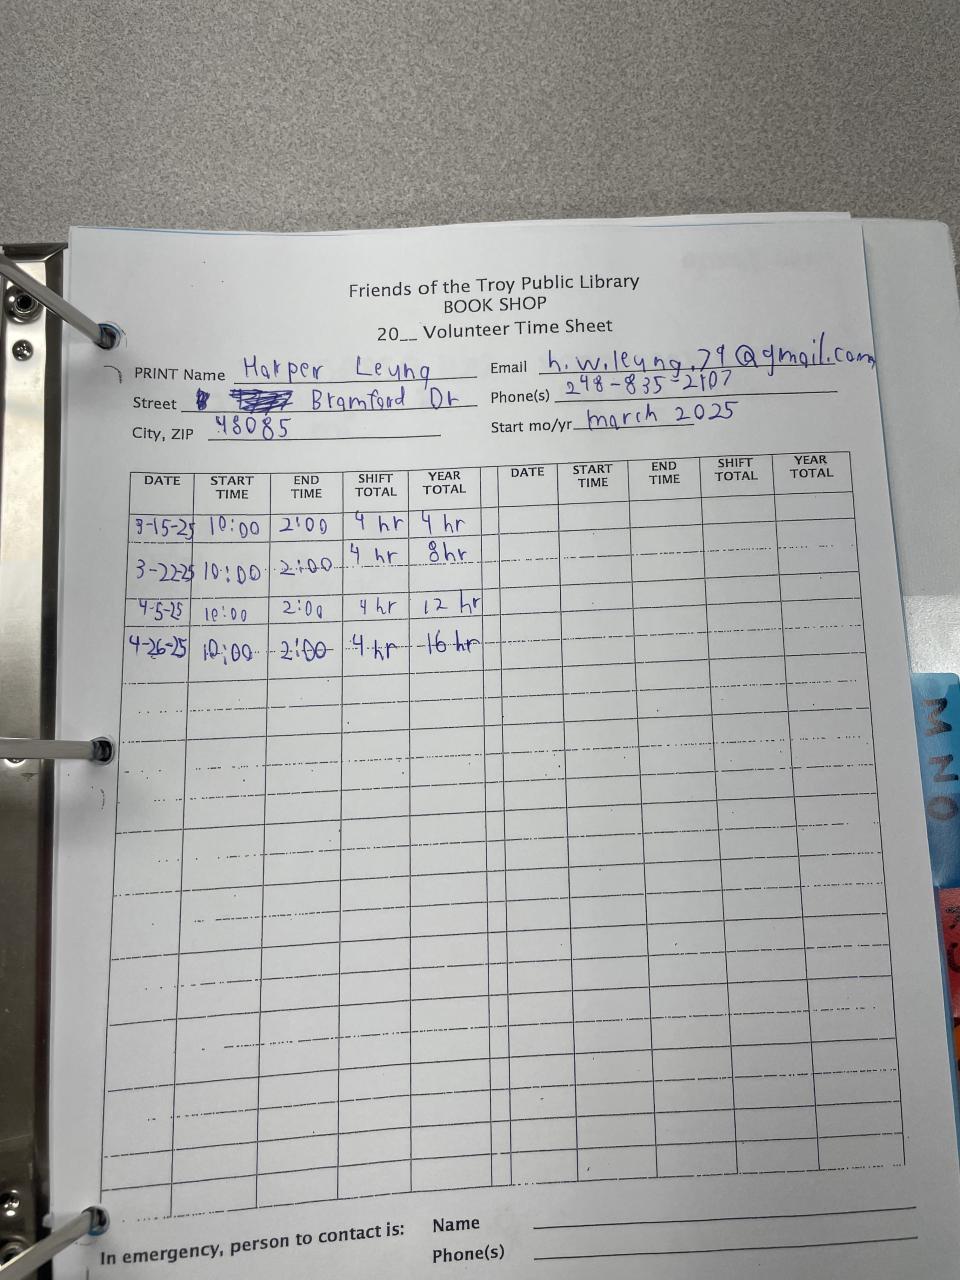 Friends of the Troy Public Library
BOOK SHOP
20__ Volunteer Time Sheet
PRINT Name Harper Leung
Email h.w.leung.79@gmail.com
Street Bramford Dr
Phone(s) 248-835-2107
City, ZIP 48085
Start mo/yr march 2025
DATE START TIME END TIME SHIFT TOTAL YEAR TOTAL DATE START TIME END TIME SHIFT TOTAL YEAR TOTAL
3-15-25 10:00 2:00 4 hr 4 hr
3-22-25 10:00 2:00 4 hr 8hr
4-5-25 10:00 2:00 4 hr 12 hr
4-26-25 10:00 2:00 4 hr 16 hr
M NO
In emergency, person to contact is: Name
Phone(s)